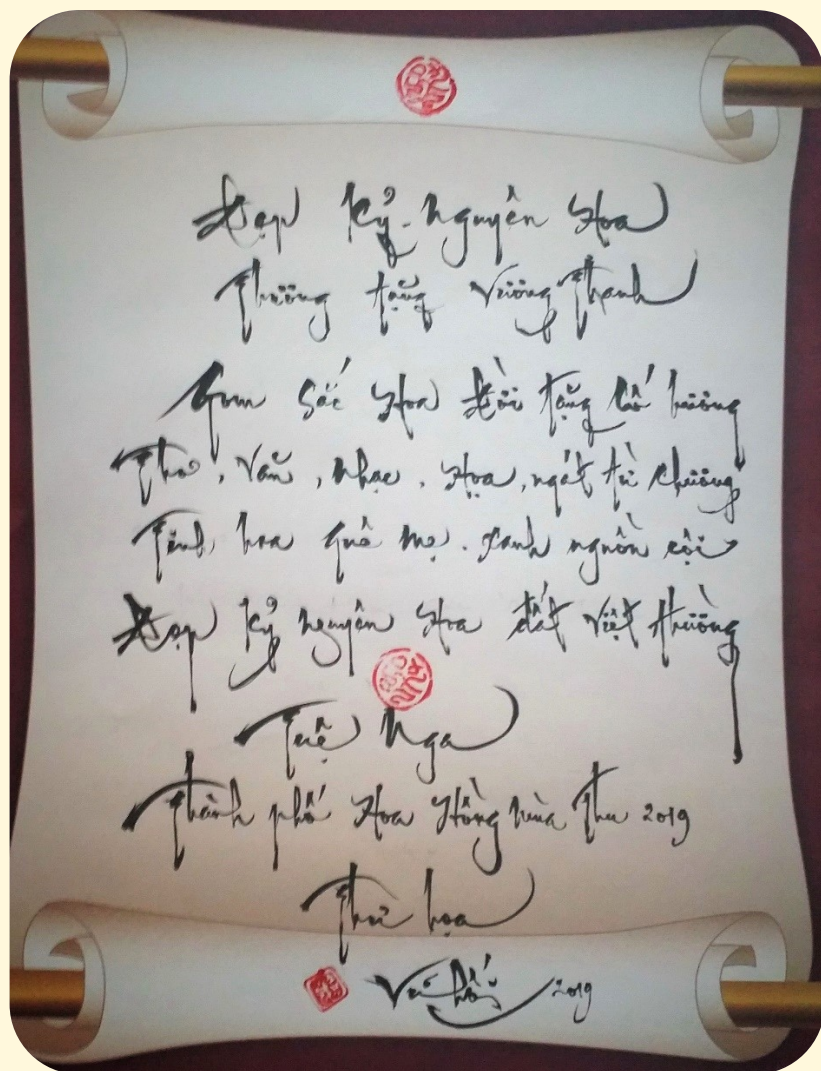 Đẹp Kỷ Nguyên Hoa
Thương tặng Vương Thanh
Gom Sắc Hoa Đời tặng Cố hương
Thơ, Văn, Nhạc, Họa, ngát từ chương
Tinh hoa quê mẹ. Xanh nguồn cội
Đẹp Kỷ nguyên Hoa đất Việt thường
Tuệ Nga
Thành phố Hoa Hồng Mùa Thu 2019
Thư họa
Vũ Hối 2019